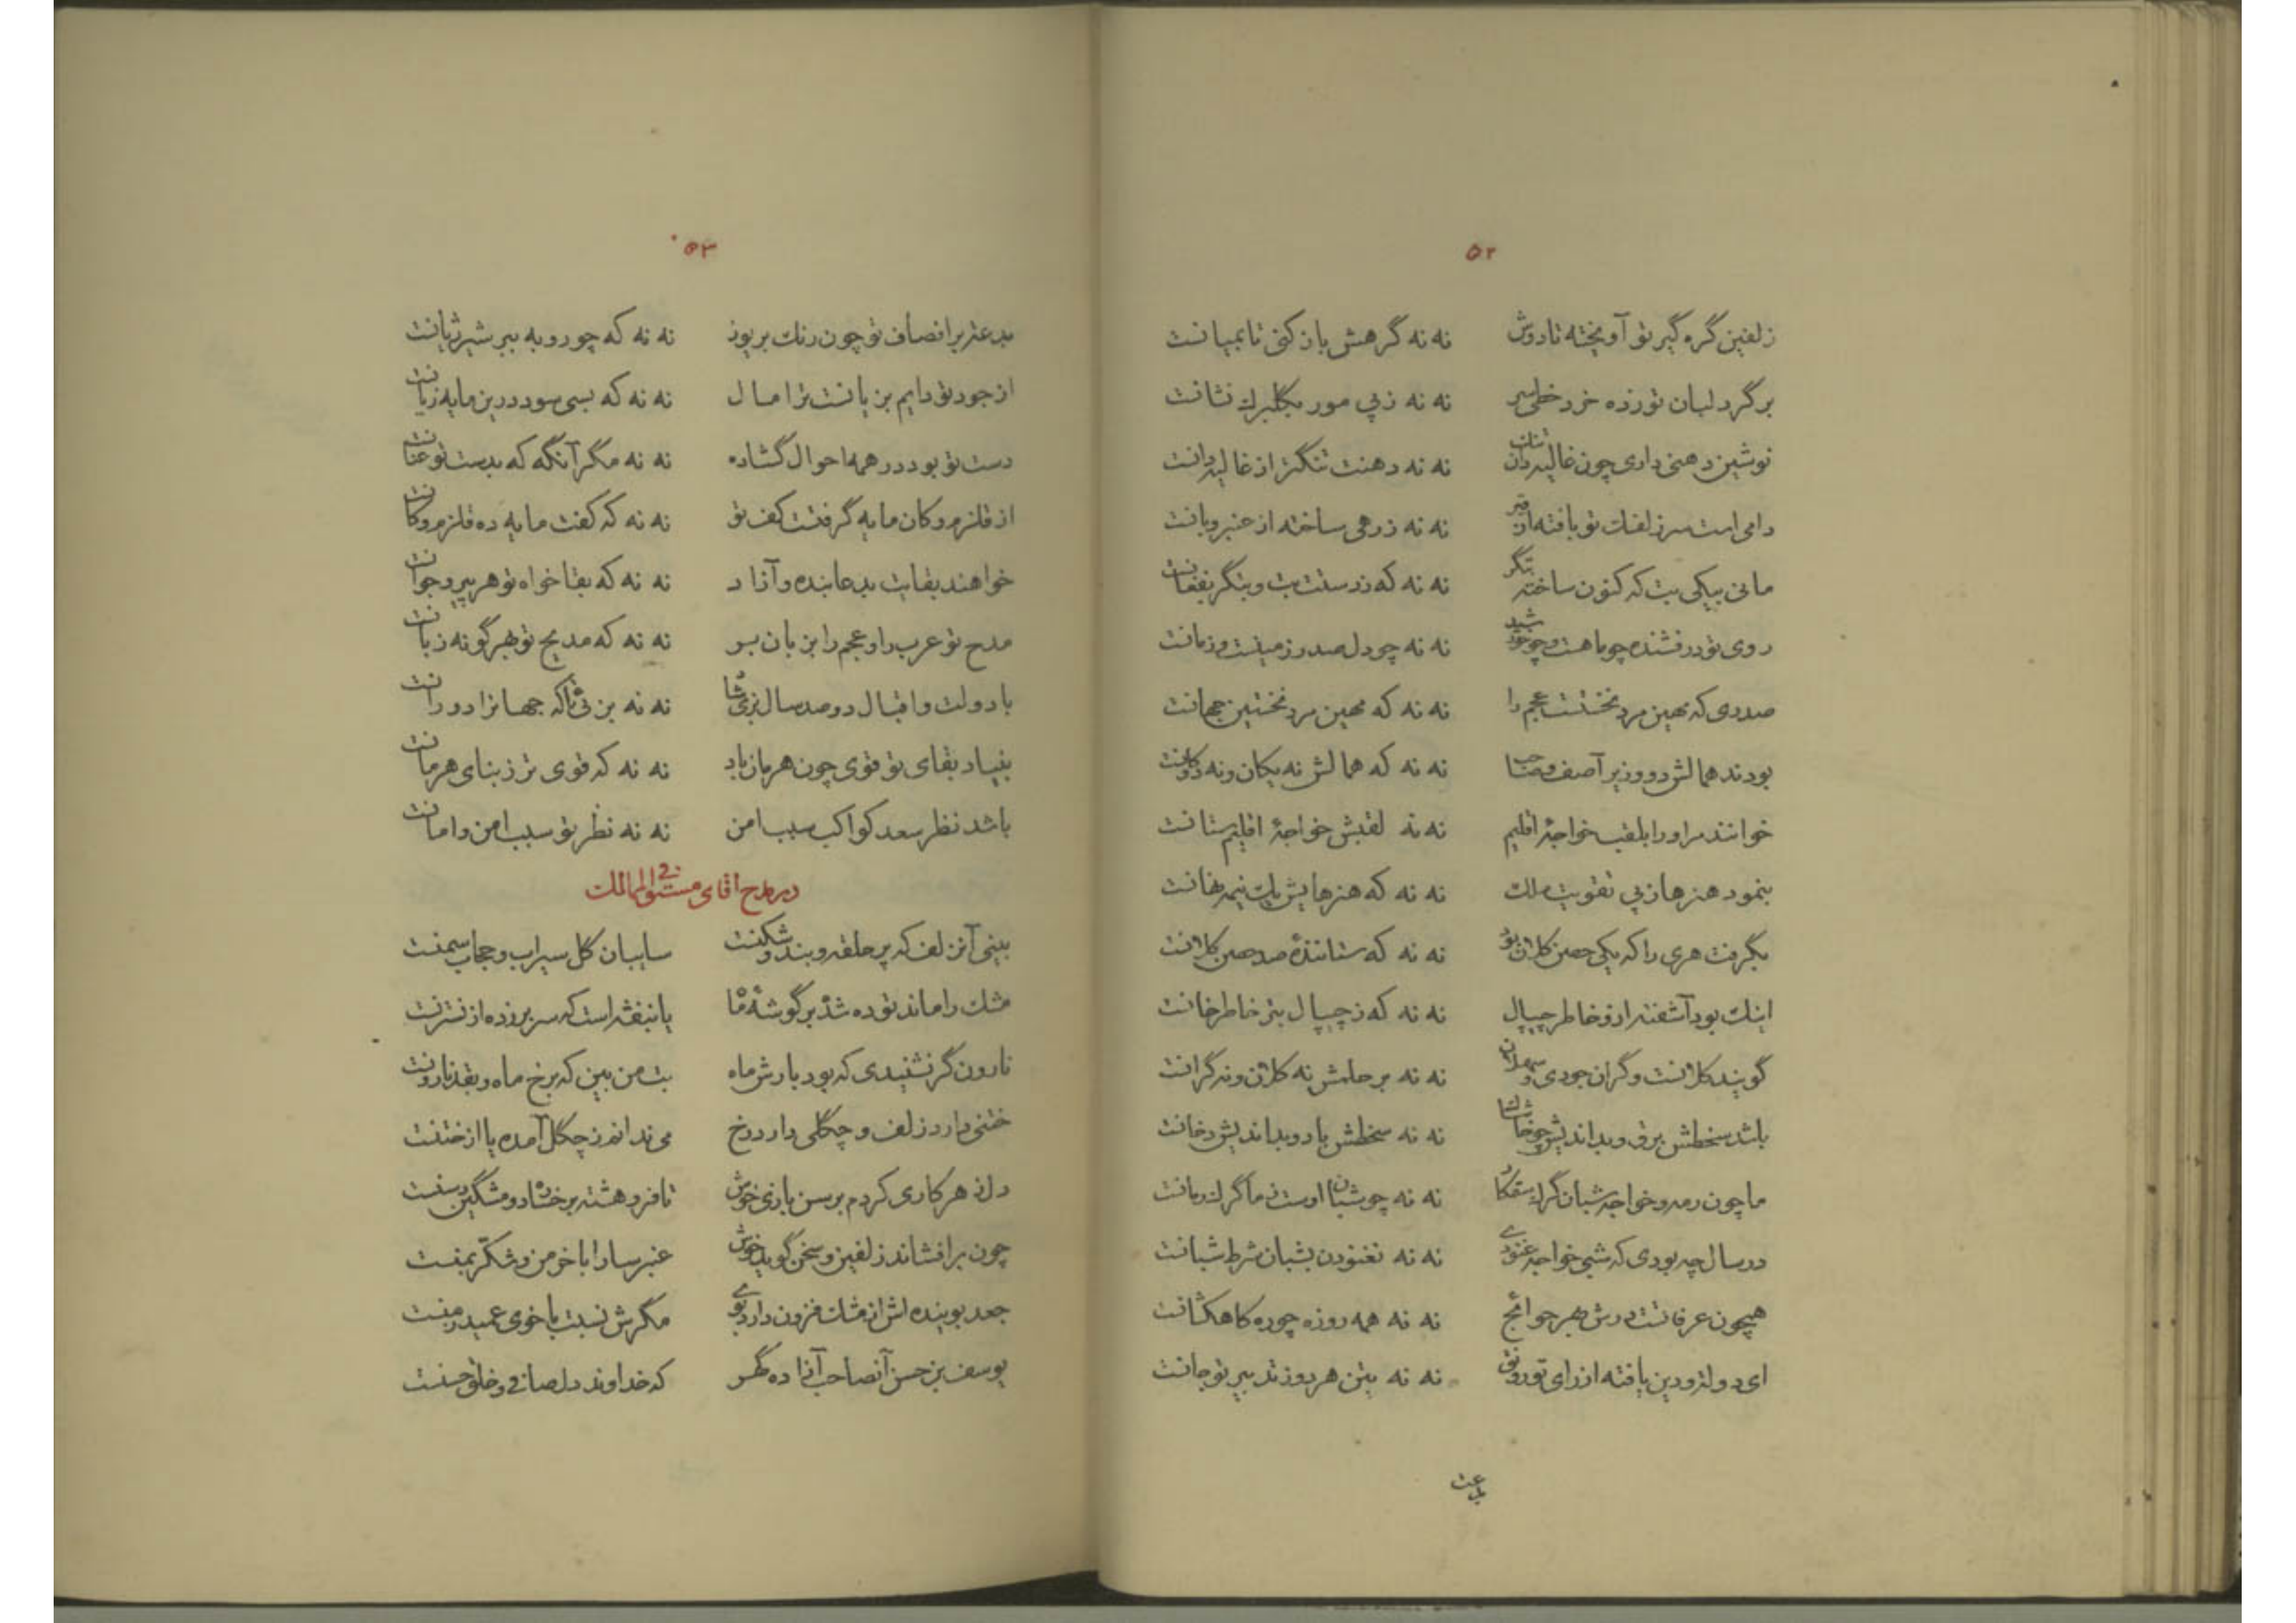 ۵۲
زلفین گره گیر تو آویخته تا دوش نه نه گرهش باز کنی تا بمیانت
برگرد لبان تو زده خرد خطی سر نه نه ز پی مور بگلبرک نشانت
نوشین دهنی داری چون غالیه دان تنک نه نه دهنت تنگتر از غالیه دانت
دامی است سر زلفک تو بافته از قیر نه نه زرهی ساخته از عنبر و بانت
مانی بیکی بت که کنون ساخته بتگر نه نه که ز دستت بت و بتگر بفغانت
روی تو درفشنده چو ماهست و چو خورشید نه نه چو دل صدر زمینست و زمانت
صدری که مهین مرد نخستست عجم را نه نه که مهین مرد نخستین جهانت
بودند همالش دو وزیر آصف و صاحب نه نه که همالش نه یکان و نه دوکانت
خوانند مر او را بلقب خواجهٔ اقلیم نه نه لقبش خواجهٔ اقلیم ستانت
بنمود هنرها ز پی تقویت ملک نه نه که هنرهایش یک نیمه نهانت
بگرفت هری را که یکی حصن کلان بود نه نه که ستانندهٔ صد حصن کلانت
اینک بود آشفته ازو خاطر چیپال نه نه که ز چیپال بتر خاطر خانت
گویند کلانست و گران جودی و سهلان نه نه بر حلمش نه کلان و نه گرانت
باشد سخطش برق و بداندیش چو خاشاک نه نه سخطش باد و بداندیش دخانت
ما چون رمه و خواجه شبان گرک ستمکار نه نه چو شبان اوست نه ما گرک دمانت
در سال چه بودی که شبی خواجه غنودی نه نه نغنودن بشبان شرط شبانت
همچون عرفاتست درش بهر حوائج نه نه همه روزه چو ره کاهکشانت
ای دولت و دین یافته از رای تو رونق نه نه بتن هر دو ز تدبیر تو جانت
بدعت
۵۳
بدعت بر انصاف تو چون رنک بر یوز نه نه که چو روبه بر شیر ژیانت
از جود تو دایم بزیانست ترا مال نه نه که بسی سود درین مایه زیانت
دست تو بود در همه احوال گشاده نه نه مگر آنگه که بدست تو عنانت
از قلزم و کان مایه گرفتست کف تو نه نه که کفت مایه ده قلزم و کانت
خواهند بقایت بدعا بنده و آزاد نه نه که بقا خواه تو هر پیر و جوانت
مدح تو عرب را و عجم را بزبان بر نه نه که مدیح تو بهر گونه زبانت
با دولت و اقبال دو صد سال بزی شاد نه نه بزئی تا که جهانرا دورانت
بنیاد بقای تو قوی چون هرمان باد نه نه که قوی تر ز بنای هرمانت
باشد نظر سعد کواکب سبب امن نه نه نظر تو سبب امن و امانت
در مدح اقای مستوفی الممالک
بینی آنزلف که پر حلقه و بند و شکنست سایبان گل سیراب و حجاب سمنست
مشک را ماند توده شده بر گوشهٔ ماه یا بنفشه است که سر بر زده از نسترنست
نارون گر نشنیدی که بود بارش ماه بت من بین که برخ ماه و بقد نارونست
ختنی دارد زلف و چگلی دارد رخ می ندانم ز چگل آمده یا از ختنست
دل ز هر کاری کردم برسن بازی خوش تا فرو هشته بر خساره دو مشگین رسنست
چون برافشاند زلفین و سخن گوید خوش عنبر سارا با خرمن و شکّر بمنست
جعد بوینده اش از مشک فزون دارد بوی مگرش نسبت با خوی عمید زمنست
یوسف بن حسن آنصاحب آزاده گهر که خداوند دل صافی و خلق حسنست